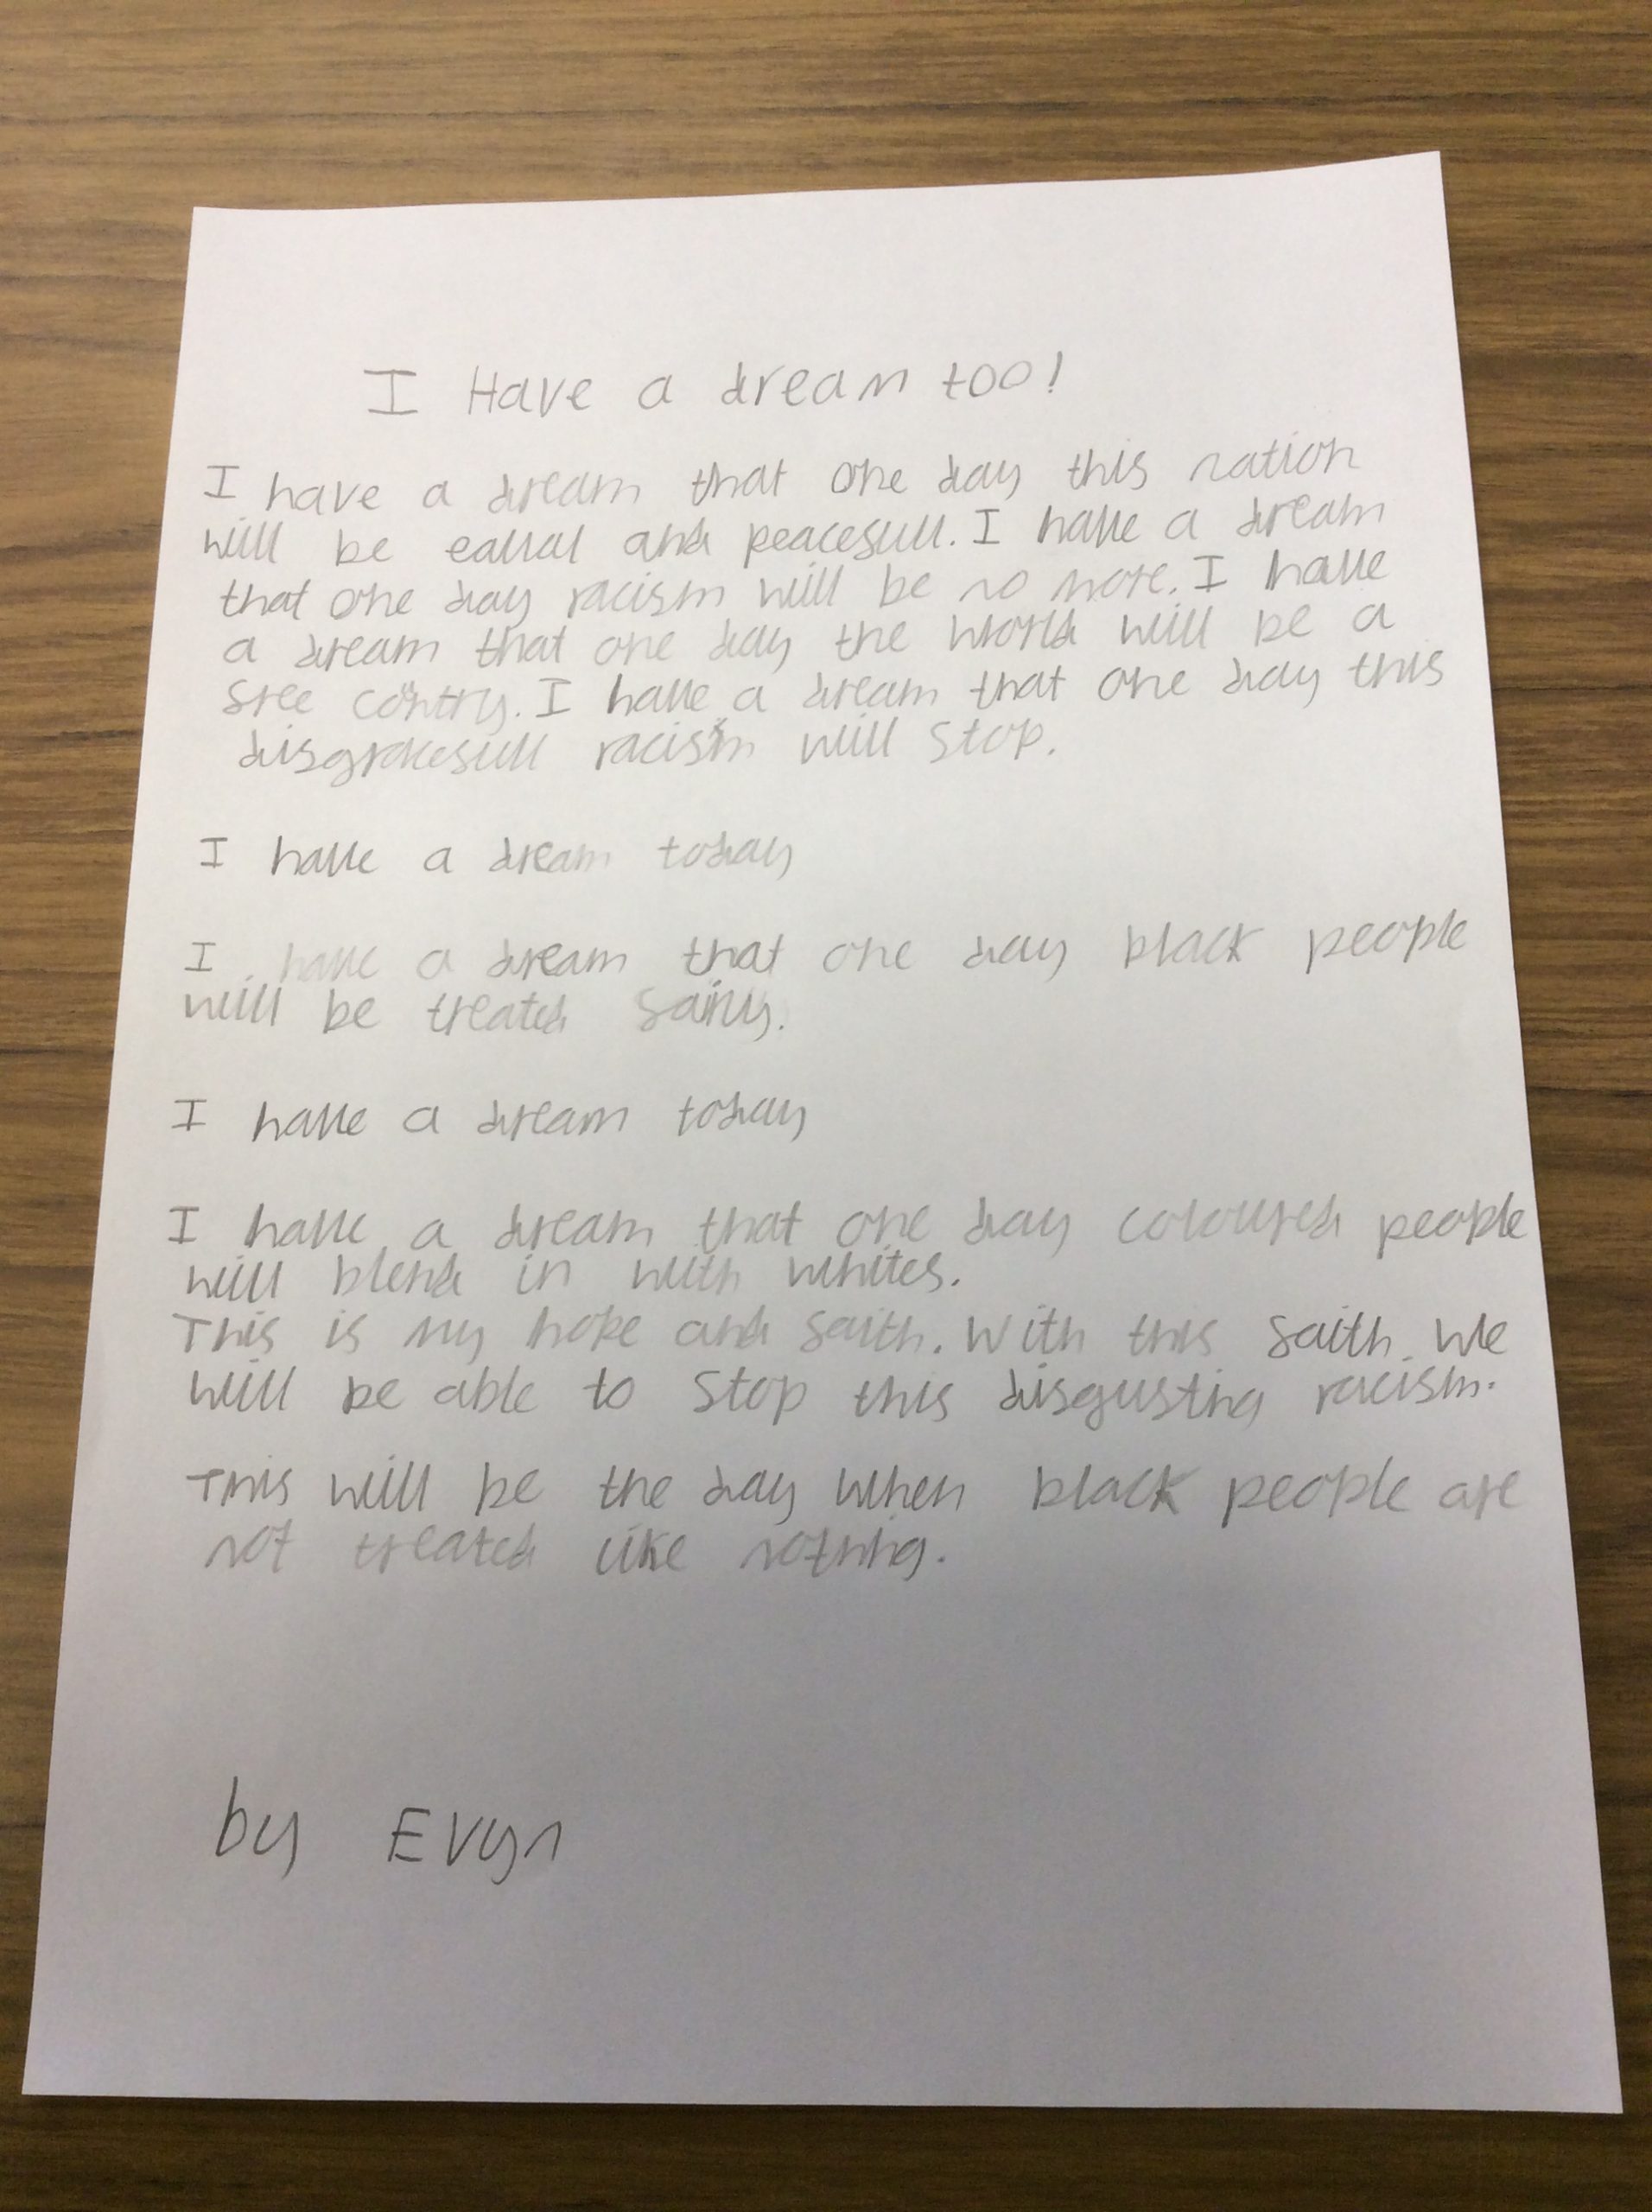 I Have a dream too!
I have a dream that one day this nation
will be equal and peacefull. I have a dream
that one day racism will be no more. I have
a dream that one day the world will be a
free contry. I have a dream that one day this
disgracefull racism will stop.
I have a dream today
I have a dream that one day black people
will be treated fairly.
I have a dream today
I have a dream that one day coloured people
will blend in with whites.
This is my hope and faith. With this faith we
will be able to stop this disgusting racism.
This will be the day when black people are
not treated like nothing.
by Evyn